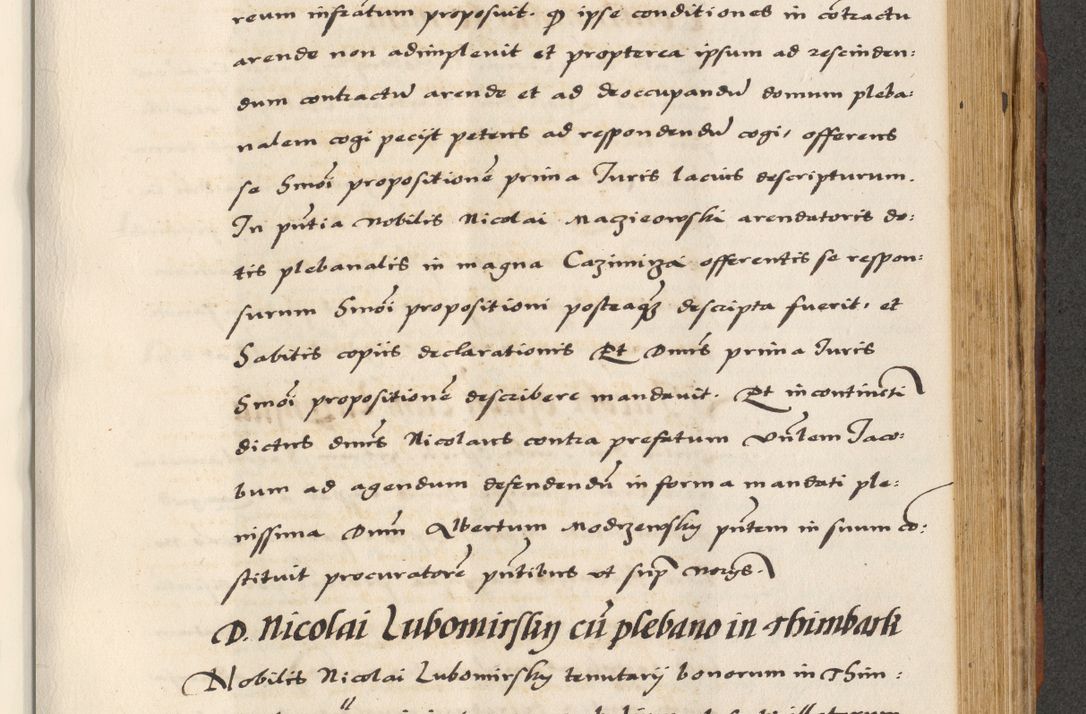 reum infratum proposuit. ꝙ ipse conditiones in cōtractu
arende non adimplevit et propterea ipsum ad rescinden:
dum contractū arende et ad deoccupandū domum pleba:
nalem cogi pecijt petens ad respondendū cogi, offerens
se hmōi propositionē prima Iuris lacius descripturum.
In pn̄tia Nobilis Nicolai Maczieowski arendatoris do:
tis plebanalis in magna Cazimirza offerentis se respon:
surum hmōi propositioni posteaqȝ descripta fuerit, et
habitis copiis declarationis Et Dm̄s prima Iuris
hmōi propositionē describere mandavit. Et incontinēti
dictus dn̄s Nicolaus contra prefatum vn̄lem Iaco:
bum ad agendum defendendū in forma mandati ple:
nissima Dnm̄ Albertum Modrzewsky pn̄tem in suum cō:
stituit procuratorē pn̄tibus ut sup̄
D. Nicolai Lubomirsky cū plebano in Thimbark
Nobilis Nicolai Lubomirsky tenutarij bonorum in Thim: